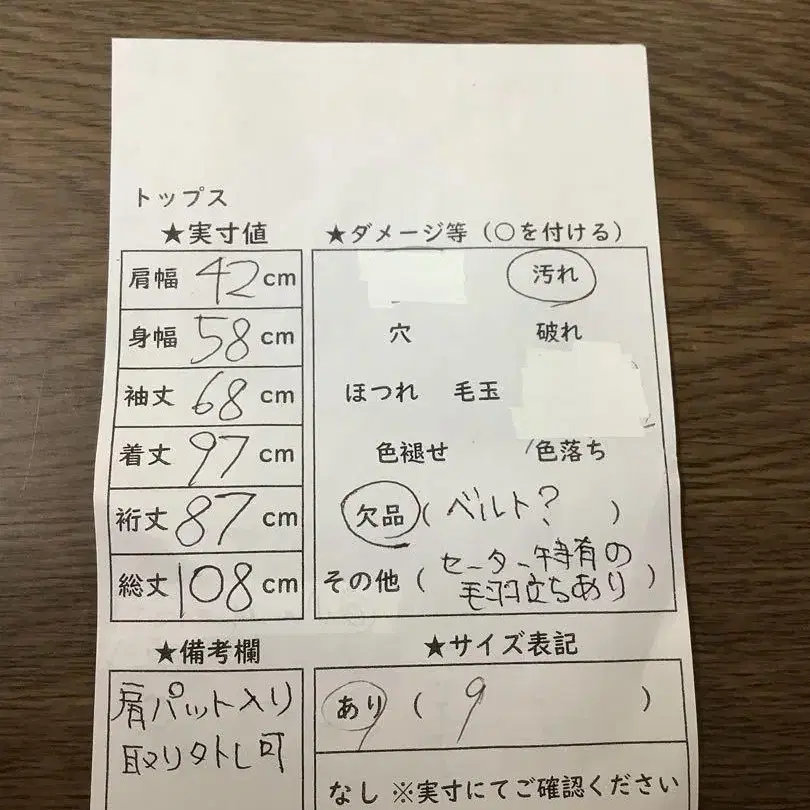 トップス
★実寸値
肩幅 42 cm
身幅 58 cm
袖丈 68 cm
着丈 97 cm
裄丈 87 cm
総丈 108 cm
★ダメージ等（〇を付ける）
汚れ
穴 破れ
ほつれ 毛玉
色褪せ 色落ち
欠品（ベルト？）
その他（セーター特有の
毛羽立ちあり）
★備考欄
肩パット入り
取り外し可
★サイズ表記
あり（ 9 ）
なし ※実寸にてご確認ください